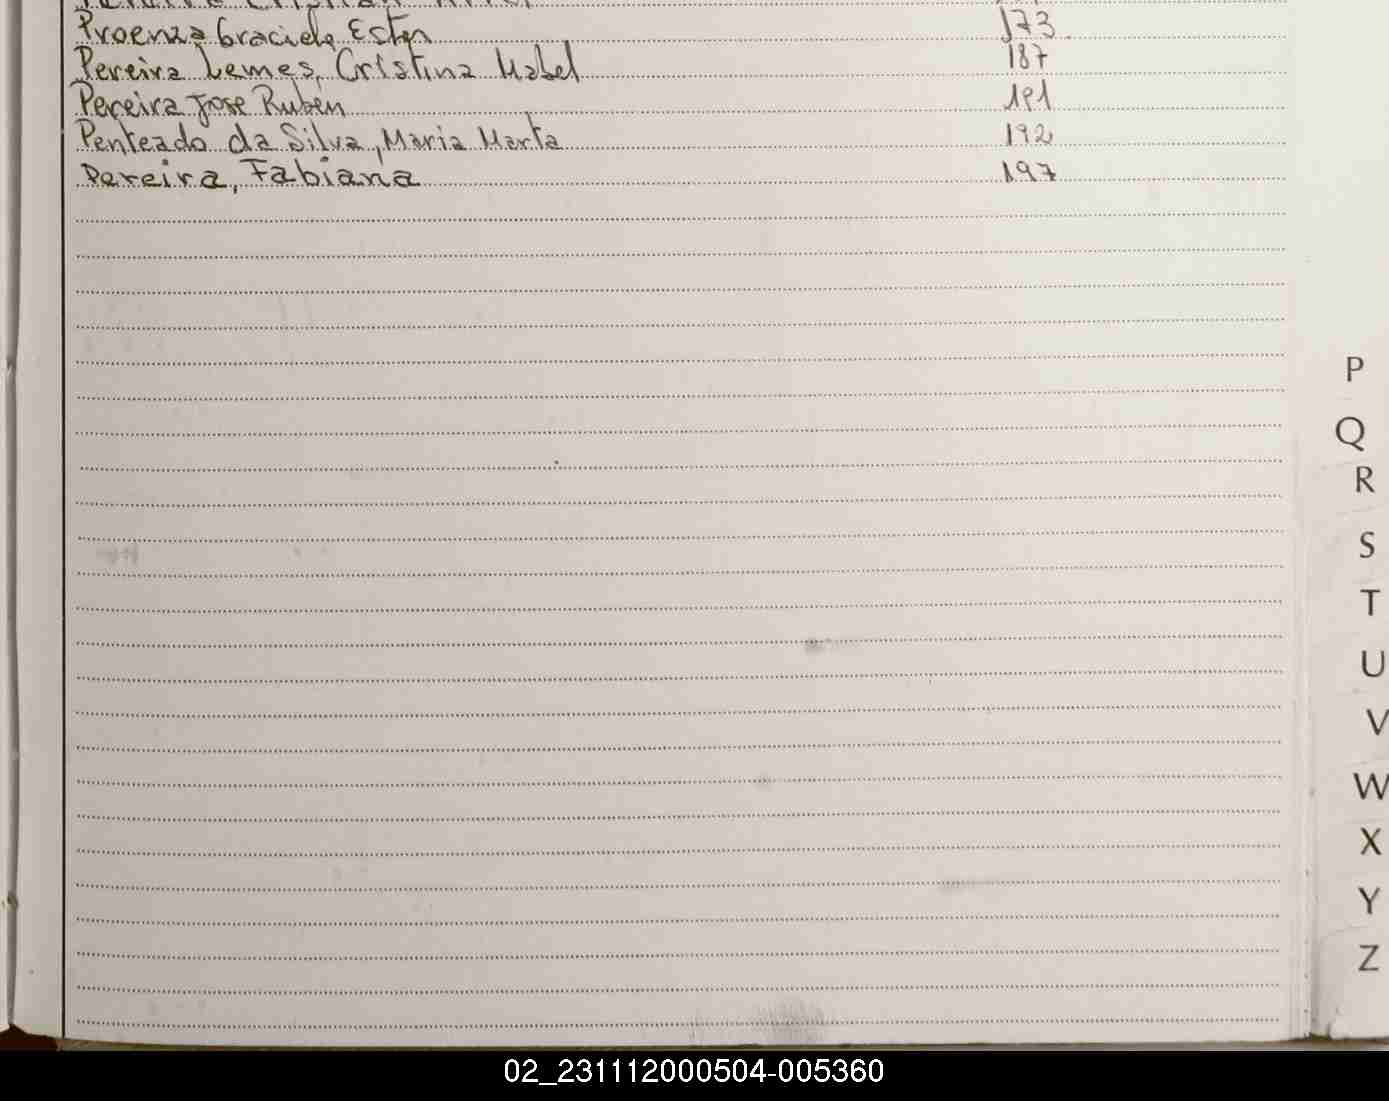 Proenza Graciela Ester 173
Pereira Lemes, Cristina Mabel 187
Pereira Jose Rubén 191
Penteado da Silva, Maria Marta 192
Pereira, Fabiana 197
P
Q
R
S
T
U
V
W
X
Y
Z
02_231112000504-005360